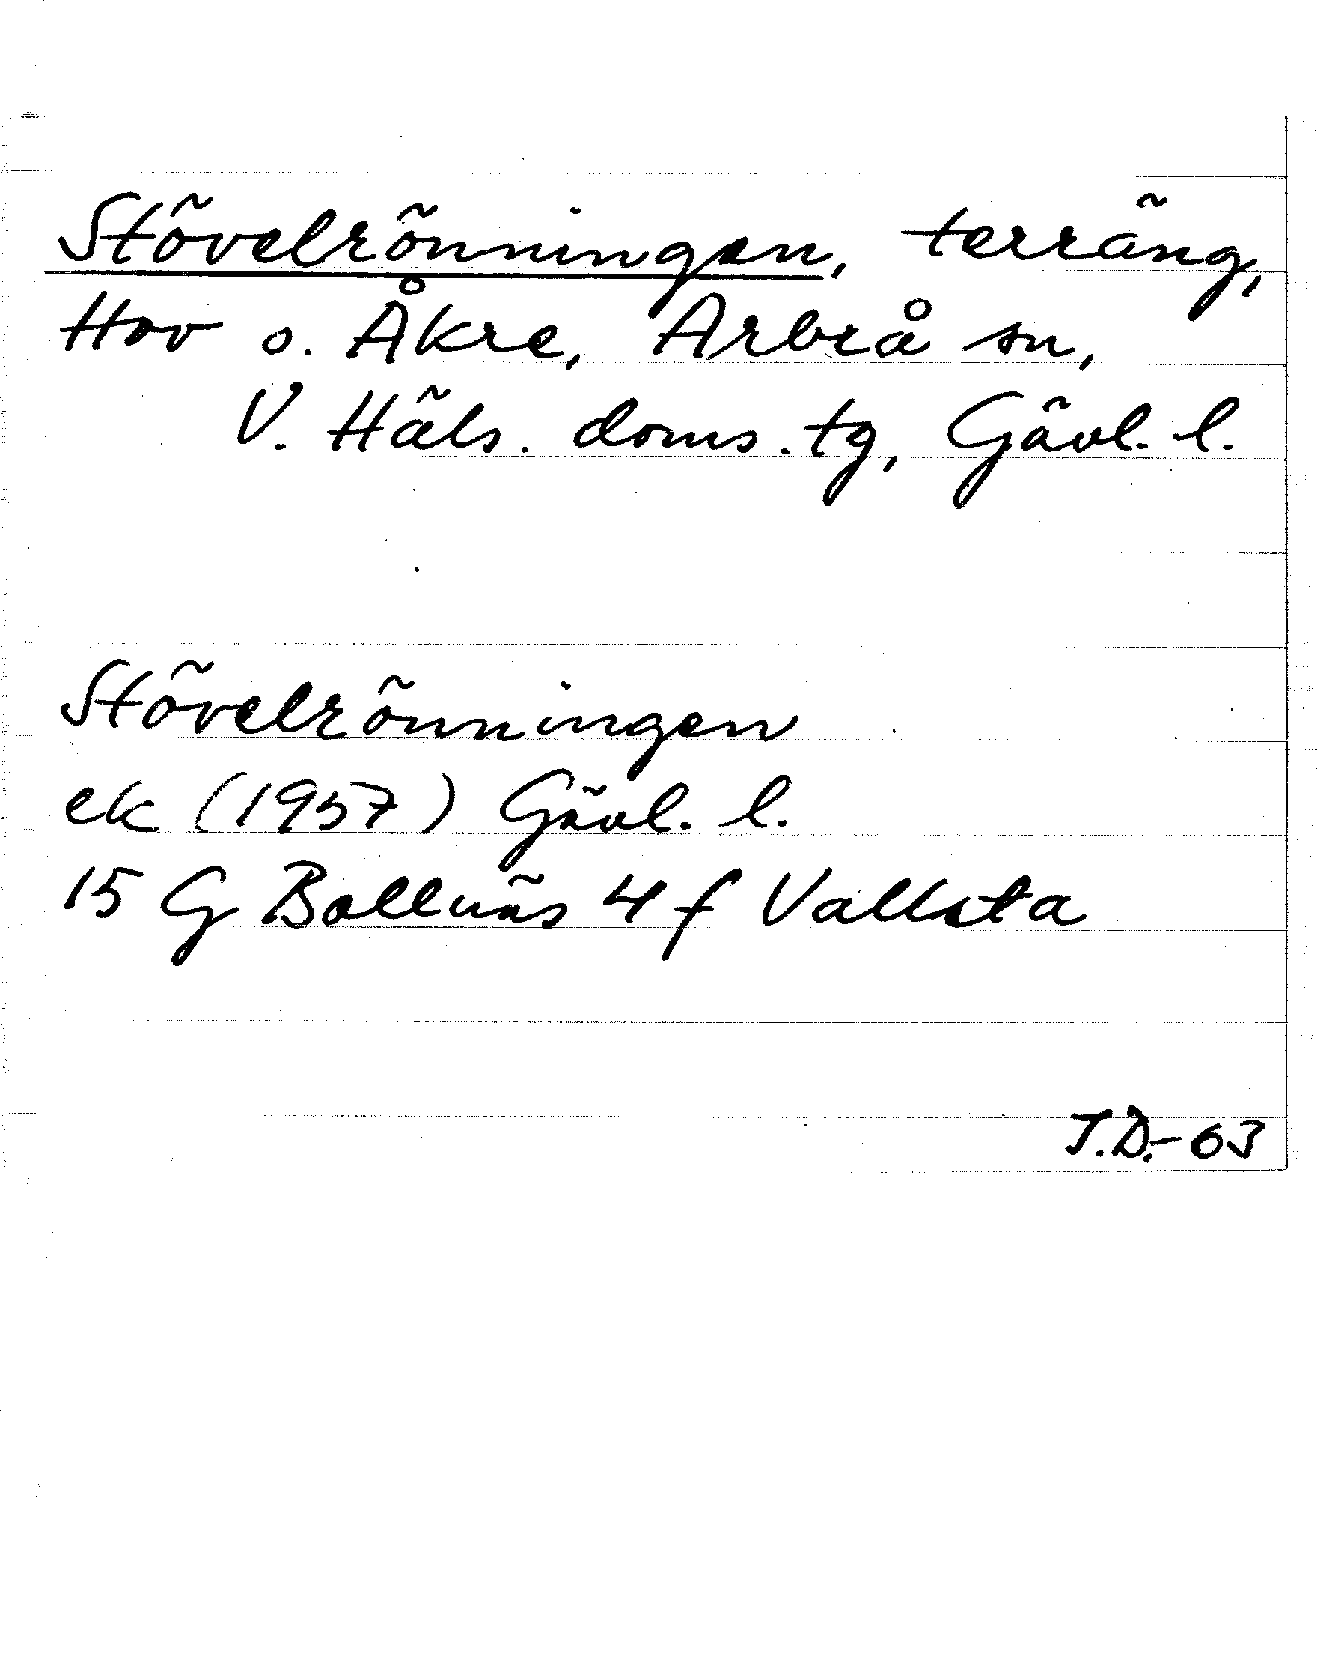 Stövelrönningen, terräng,
Hov o. Åkre, Arbrå sn,
V. Häls. doms. tg, Gävl. l.
Stövelrönningen
ek (1957) Gävl. l.
15 G Bollnäs 4 f Vallsta
J.D.-63